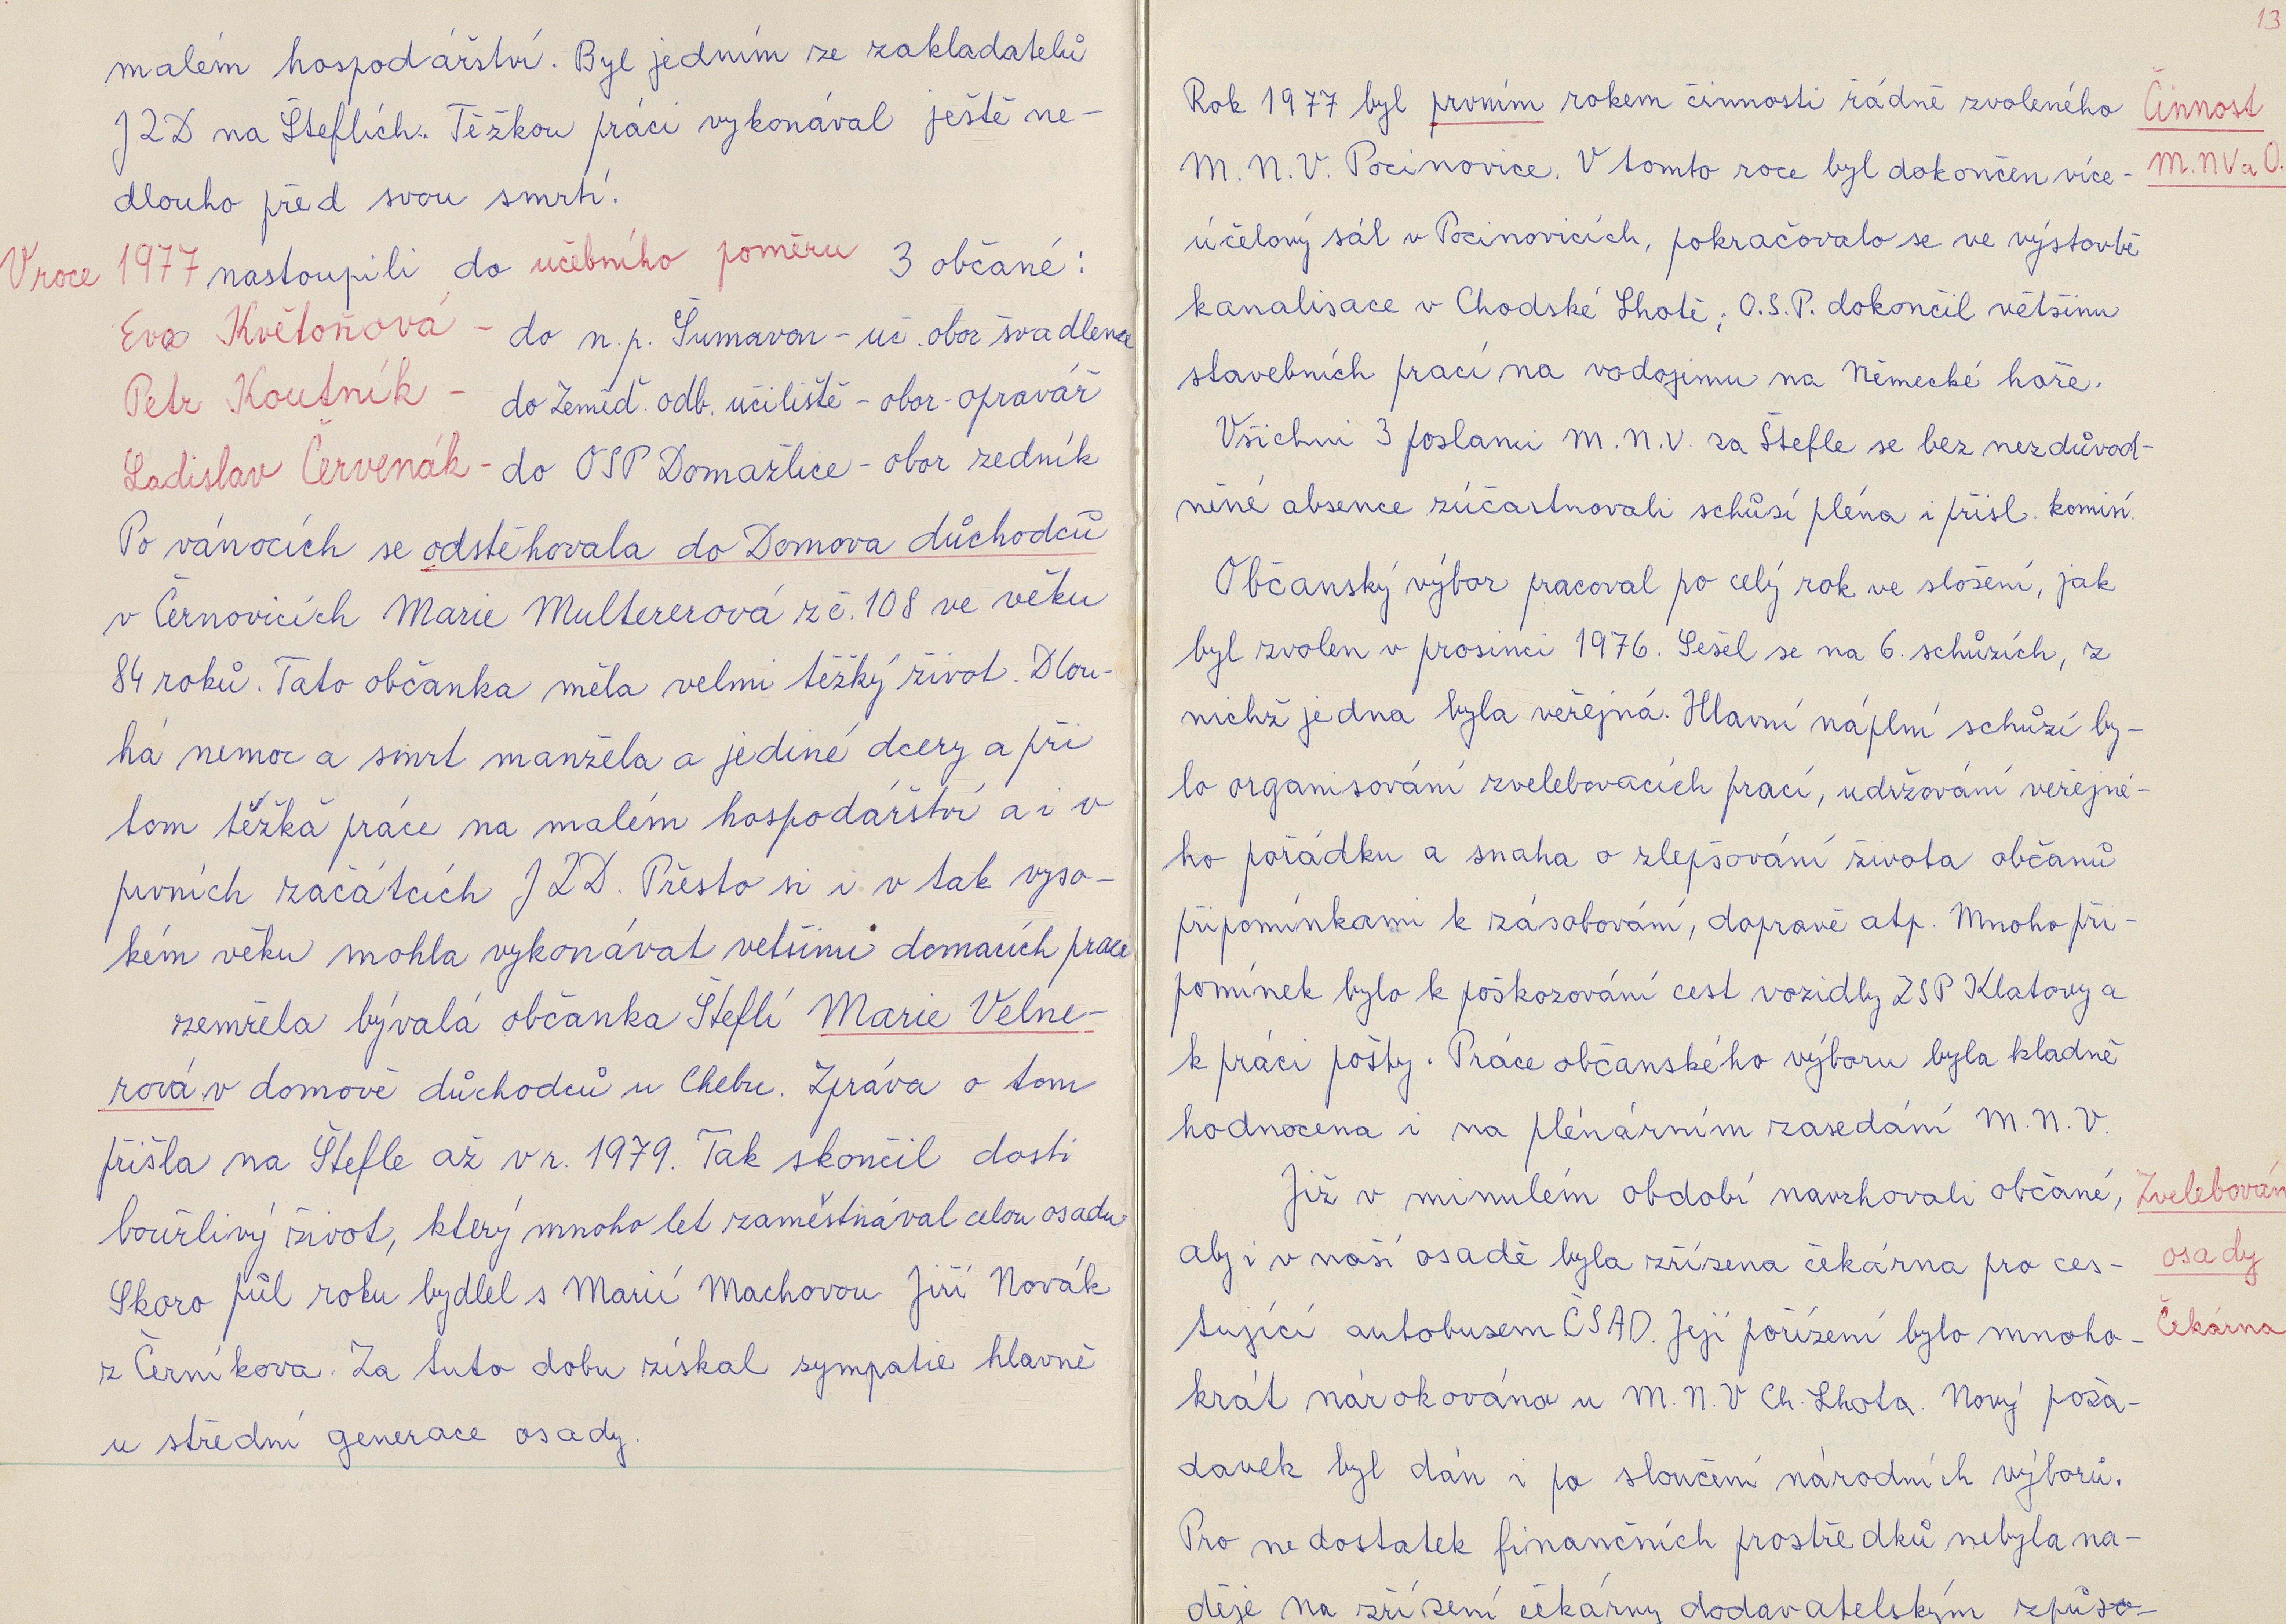 malém hospodářství. Byl jedním ze zakladatelů
JZD na Šteflích. Těžkou práci vykonával ještě ne-
dlouho před svou smrtí.
V roce 1977 nastoupili do učebního poměru 3 občané:
Eva Květoňová - do n.p. Šumavan - uč. obor švadlena
Petr Koutník - do Zeměd. odb. učiliště - obor - opravář
Ladislav Červenák - do OSP Domažlice - obor zedník
Po vánocích se odstěhovala do Domova důchodců
v Černovicích Marie Multererová z č. 108 ve věku
84 roků. Tato občanka měla velmi těžký život. Dlou-
há nemoc a smrt manžela a jediné dcery a při
tom těžká práce na malém hospodářství a i v
prvních začátcích JZD. Přesto si i v tak vyso-
kém věku mohla vykonávat vetšinu domacích prací
zemřela bývalá občanka Šteflí Marie Velne-
rová v domově důchodců u Chebu. Zpráva o tom
přišla na Štefle až v r. 1979. Tak skončil dosti
bouřlivý život, který mnoho let zaměstnával celou osadu
Skoro půl roku bydlel s Marií Machovou Jiří Novák
z Černíkova. Za tuto dobu získal sympatie hlavně
u střední generace osady.
13
Rok 1977 byl prvním rokem činnosti řádně zvoleného
Činnost
M.N.V. Pocinovice. V tomto roce byl dokončen více-
M.NV a O.
účelový sál v Pocinovicích, pokračovalo se ve výstavbě
kanalisace v Chodské Lhotě; O.S.P. dokončil většinu
stavebních prací na vodojemu na Německé hoře.
Všichni 3 poslanci M.N.V. za Štefle se bez nezdůvod-
něné absence zúčastnovali schůzí pléna i přísl. komisí.
Občanský výbor pracoval po celý rok ve složení, jak
byl zvolen v prosinci 1976. Sešel se na 6. schůzích, z
nichž jedna byla veřejná. Hlavní náplní schůzí by-
lo organisování zvelebovacích prací, udržování veřejné-
ho pořádku a snaha o zlepšování života občanů
připomínkami k zásobování, dopravě atp. Mnoho při-
pomínek bylo k poškozování cest vozidly ZSP Klatovy a
k práci pošty. Práce občanského výboru byla kladně
hodnocena i na plénárním zasedání M.N.V.
Již v minulém období navrhovali občané,
Zvelebován
aby i v naší osadě byla zřízena čekárna pro ces-
osady
tující autobusem ČSAD. Její pořízení bylo mnoho-
Čekárna
krát nárokováno u M.N.V Ch. Lhota. Nový poža-
davek byl dán i po sloučení národních výborů.
Pro nedostatek finančních prostředků nebyla na-
děje na zřízení čekárny dodavatelským způso-